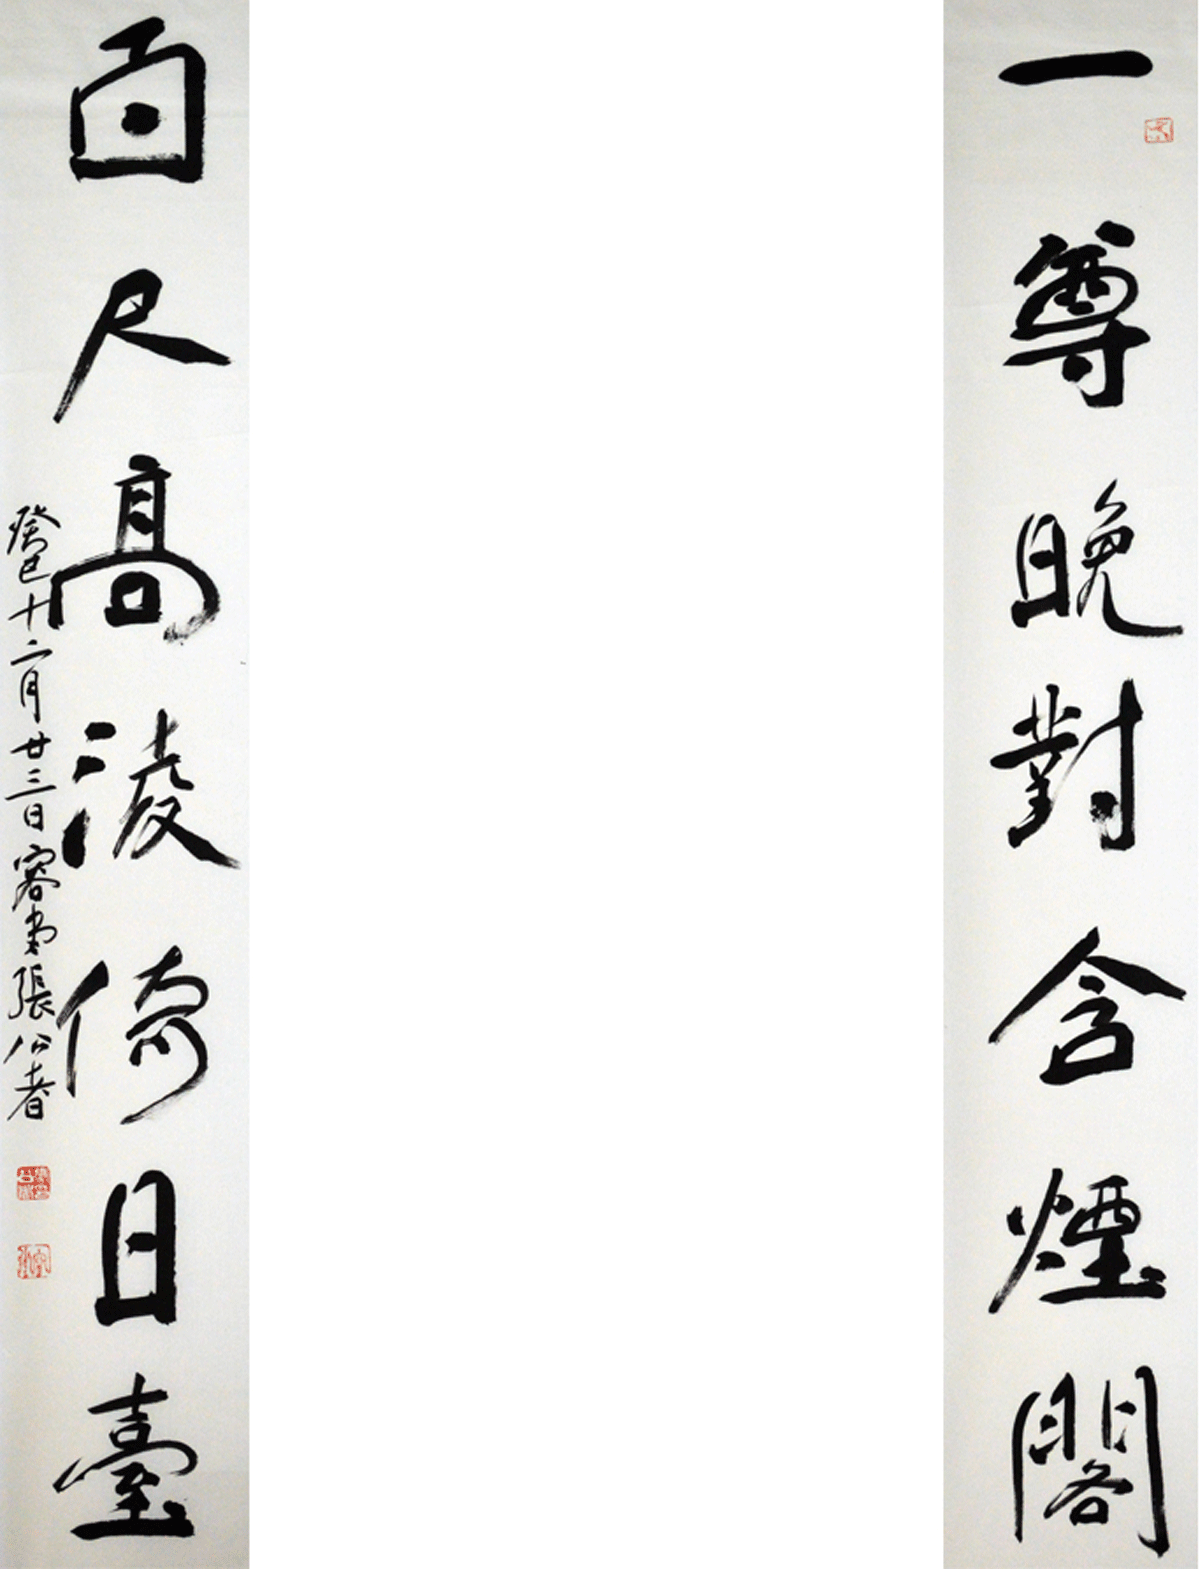 一尊晚對含煙閣
百尺高淩倚日臺
癸巳十二月廿三日容堂張公者